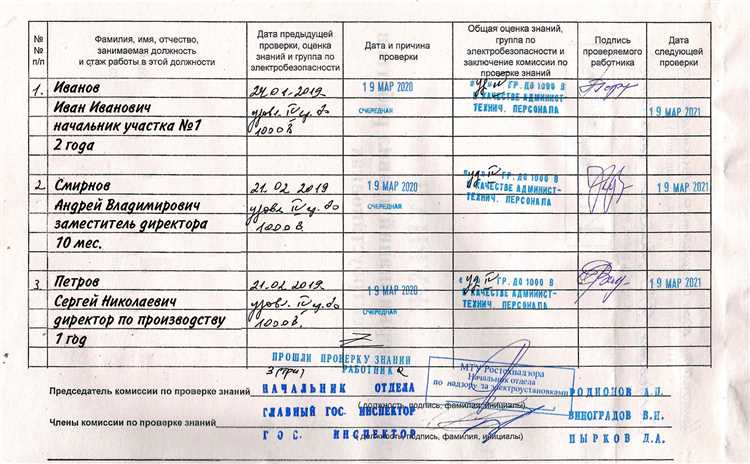 № № п/п
Фамилия, имя, отчество, занимаемая должность и стаж работы в этой должности
Дата предыдущей проверки, оценка знаний и группа по электробезопасности
Дата и причина проверки
Общая оценка знаний, группа по электробезопасности и заключение комиссии по проверке знаний
Подпись проверяемого работника
Дата следующей проверки
1. Иванов
24.01.2019
19 МАР 2020
"уд" IV ГР. ДО 1000 В
Иван Иванович
удовл. IV гр. до
ОЧЕРЕДНАЯ
В КАЧЕСТВЕ АДМИНИСТ-
ТЕХНИЧ. ПЕРСОНАЛА
19 МАР 2021
начальник участка №1
1000 В
2 года
2. Смирнов
21.02 2019
19 МАР 2020
"уд" IV ГР. ДО 1000 В
19 МАР 2021
Андрей Владимирович
удовл. IV гр. до
ОЧЕРЕДНАЯ
В КАЧЕСТВЕ АДМИНИСТ-
ТЕХНИЧ. ПЕРСОНАЛА
заместитель директора
1000 В
10 мес.
3. Петров
21.02 2019
19 МАР 2020
"уд" IV ГР. ДО 1000 В
19 МАР 2021
Сергей Николаевич
удовл. IV гр. до
ОЧЕРЕДНАЯ
В КАЧЕСТВЕ АДМИНИСТ-
ТЕХНИЧ. ПЕРСОНАЛА
директор по производству
1000 В.
1 год
ПРОШЛИ ПРОВЕРКУ ЗНАНИЙ
3 (три) РАБОТНИКа
МТУ Ростехнадзора
Начальник отдела
по надзору за электроустановками
Председатель комиссии по проверке знаний НАЧАЛЬНИК ОТДЕЛА РОДИОНОВ А.П.
(должность, подпись, фамилия, инициалы)
Члены комиссии по проверке знаний ГЛАВНЫЙ ГОС. ИНСПЕКТОР ВИНОГРАДОВ В.Н.
ГОС. ИНСПЕКТОР ПЫРКОВ Л.А.
(должность, подпись, фамилия, инициалы)